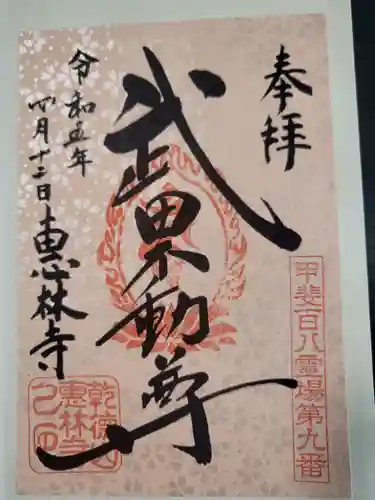 奉拝
甲斐百八霊場第九番
武田不動尊
令和五年
四月十二日
恵林寺
乾徳山
恵林寺